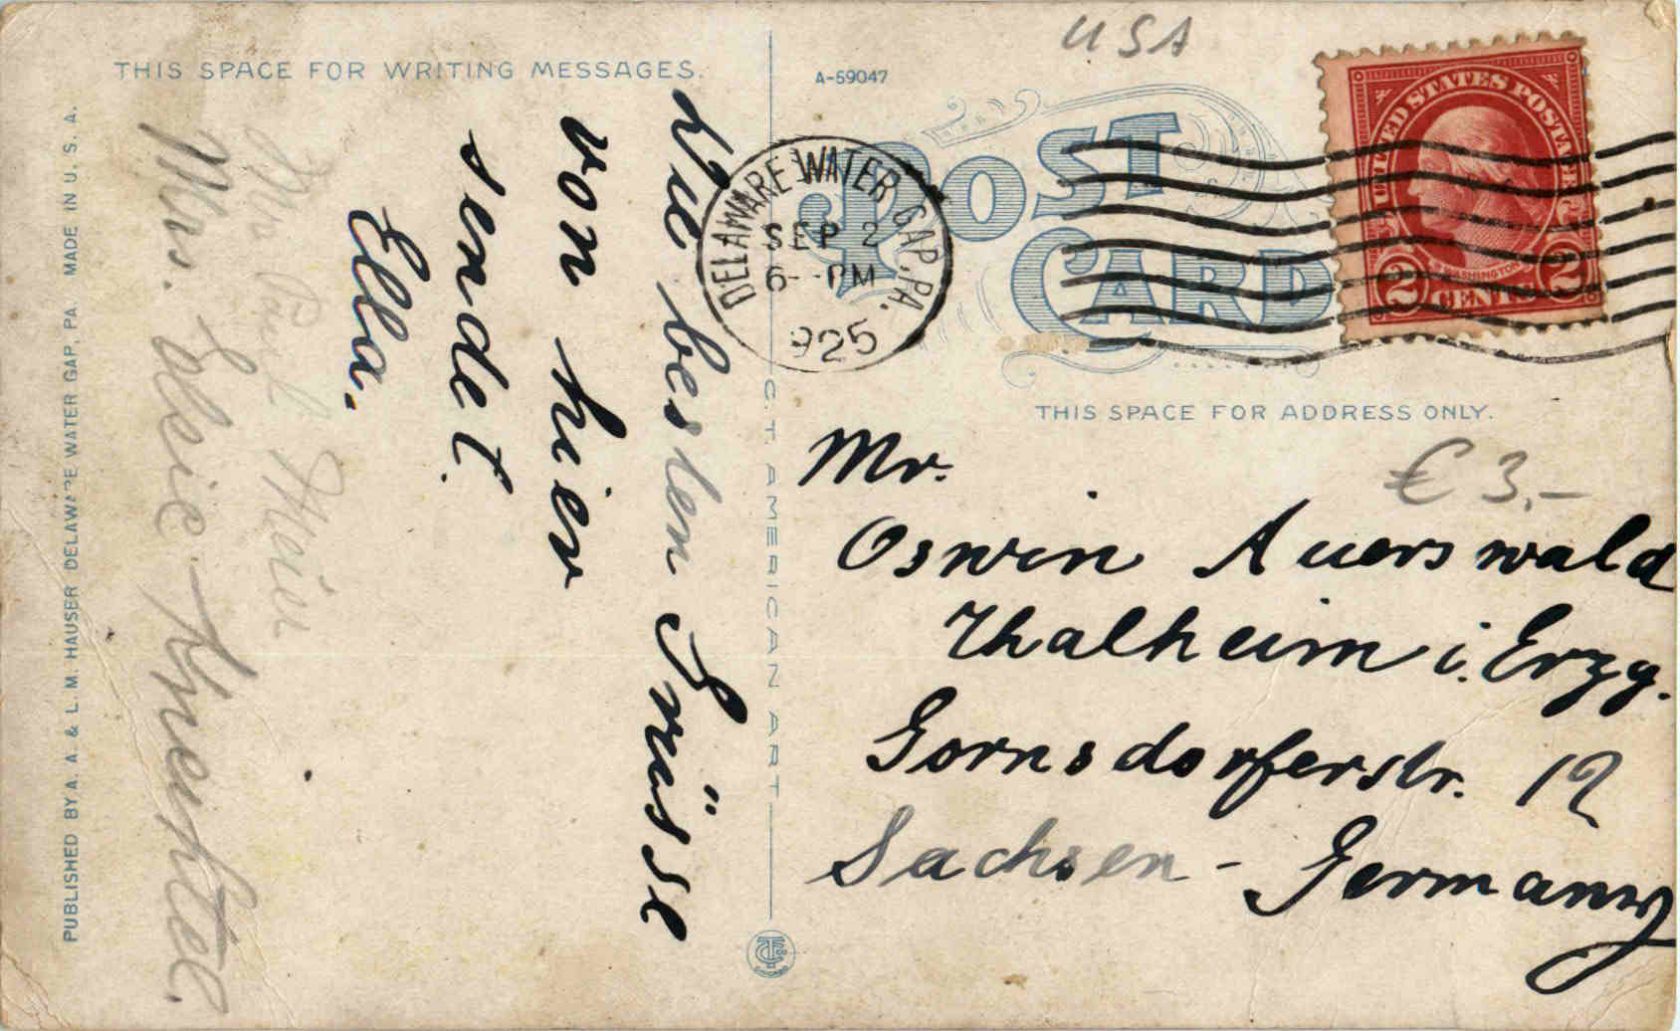 THIS SPACE FOR WRITING MESSAGES.
Die besten Grüsse
von hier
sendet
Ella.
Maier
Mrs. Elsie
PUBLISHED BY A. A. & L. M. HAUSER DELAWARE WATER GAP, PA. MADE IN U. S. A.
C. T. AMERICAN ART
A-59047
USA
POST CARD
DELAWARE WATER GAP, PA.
SEP 2
6-PM
925
UNITED STATES POSTAGE
WASHINGTON
2 CENTS 2
THIS SPACE FOR ADDRESS ONLY.
€ 3,-
Mr.
Oswin Auerswald
Thalheim i. Erzg.
Gornsdorferstr. 12
Sachsen - Germany